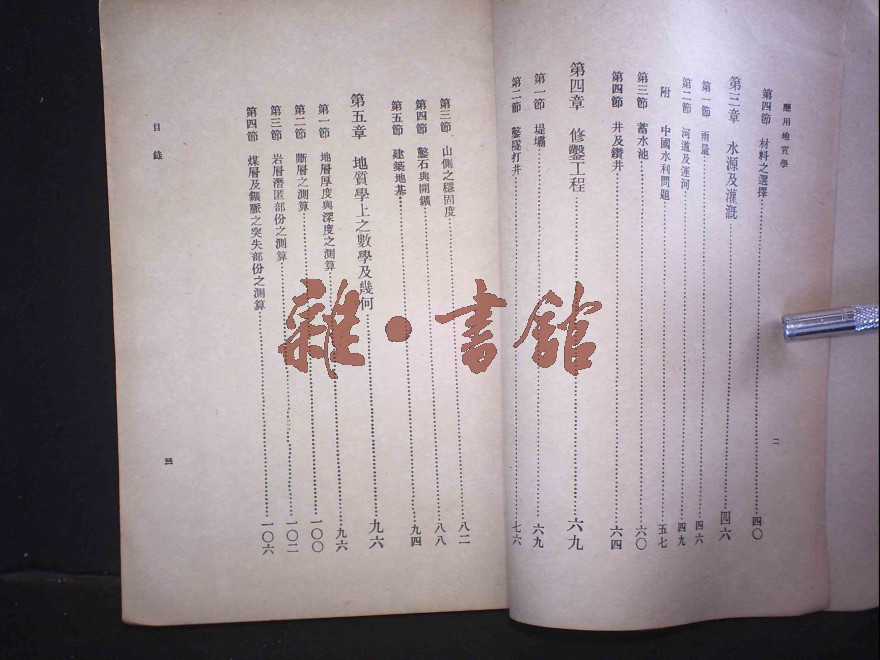 應用地質學
二
第四節 材料之選擇 四〇
第三章 水源及灌溉 四六
第一節 雨量 四六
第二節 河道及運河 四九
附 中國水利問題 五七
第三節 蓄水池 六〇
第四節 井及鑽井 六四
第四章 修鑿工程 六九
第一節 堤壩 六九
第二節 鑿隧打井 七六
第三節 山側之穩固度 八二
第四節 鑿石與開鑛 八八
第五節 建築地基 九四
第五章 地質學上之數學及幾何 九六
第一節 地層厚度與深度之測算 九六
第二節 斷層之測算 一〇〇
第三節 岩層潛匿部份之測算 一〇二
第四節 煤層及鑛脈之突失部份之測算 一〇六
目錄
三
雜·書館